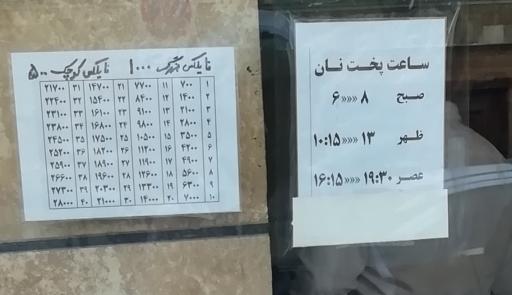 ساعت پخت نان
صبح ۸ »»» ۶
ظهر ۱۳ »»» ۱۰:۱۵
عصر ۱۹:۳۰ »»» ۱۶:۱۵
نایلکس بزرگ ۱۰۰۰ نایلکس کوچک ۵۰۰
۱ ۷۰۰ ۱۱ ۷۷۰۰ ۲۱ ۱۴۷۰۰ ۳۱ ۲۱۷۰۰
۲ ۱۴۰۰ ۱۲ ۸۴۰۰ ۲۲ ۱۵۴۰۰ ۳۲ ۲۲۴۰۰
۳ ۲۱۰۰ ۱۳ ۹۱۰۰ ۲۳ ۱۶۱۰۰ ۳۳ ۲۳۱۰۰
۴ ۲۸۰۰ ۱۴ ۹۸۰۰ ۲۴ ۱۶۸۰۰ ۳۴ ۲۳۸۰۰
۵ ۳۵۰۰ ۱۵ ۱۰۵۰۰ ۲۵ ۱۷۵۰۰ ۳۵ ۲۴۵۰۰
۶ ۴۲۰۰ ۱۶ ۱۱۲۰۰ ۲۶ ۱۸۲۰۰ ۳۶ ۲۵۲۰۰
۷ ۴۹۰۰ ۱۷ ۱۱۹۰۰ ۲۷ ۱۸۹۰۰ ۳۷ ۲۵۹۰۰
۸ ۵۶۰۰ ۱۸ ۱۲۶۰۰ ۲۸ ۱۹۶۰۰ ۳۸ ۲۶۶۰۰
۹ ۶۳۰۰ ۱۹ ۱۳۳۰۰ ۲۹ ۲۰۳۰۰ ۳۹ ۲۷۳۰۰
۱۰ ۷۰۰۰ ۲۰ ۱۴۰۰۰ ۳۰ ۲۱۰۰۰ ۴۰ ۲۸۰۰۰